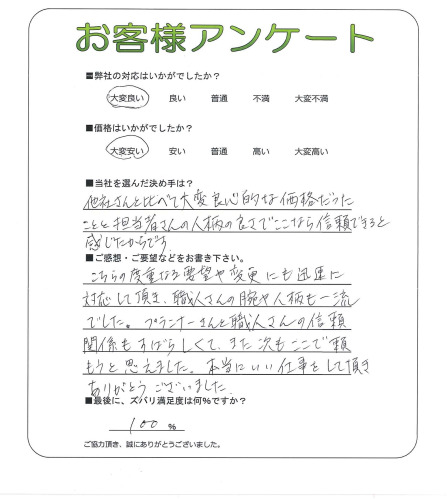 お客様アンケート
■弊社の対応はいかがでしたか？
大変良い 良い 普通 不満 大変不満
■価格はいかがでしたか？
大変安い 安い 普通 高い 大変高い
■当社を選んだ決め手は？
他社さんと比べて大変良心的な価格だった
ことと担当者さんの人柄の良さでここなら信頼できると
感じたからです。
■ご感想・ご要望などをお書き下さい。
こちらの度重なる要望や変更にも迅速に
対応して頂き、職人さんの腕や人柄も一流
でした。プランナーさんと職人さんの信頼
関係もすばらしくて、また次もここで頼
もうと思えました。本当にいい仕事をして頂き
ありがとうございました。
■最後に、ズバリ満足度は何%ですか？
100 %
ご協力頂き、誠にありがとうございました。